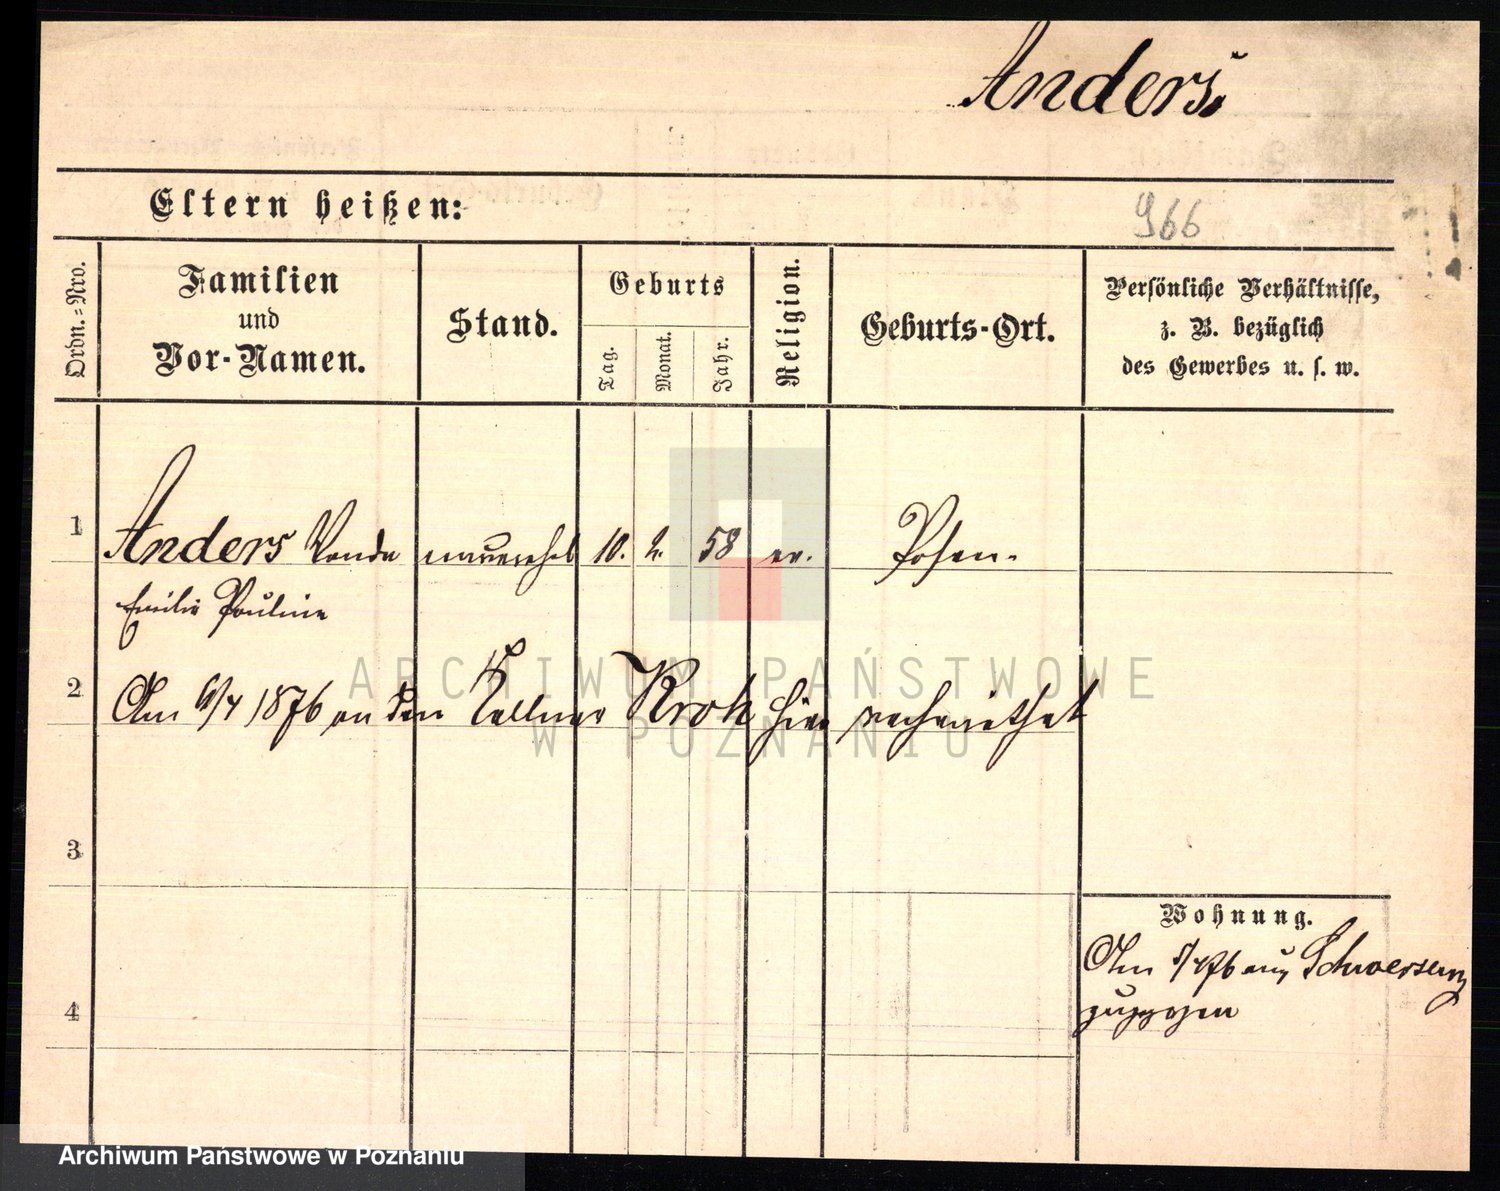 Anders.
Eltern heißen:
966
Ordn.=Nro.
Familien
und
Vor-Namen.
Stand.
Geburts
Tag.
Monat.
Jahr.
Religion.
Geburts-Ort.
Persönliche Verhältnisse,
z. B. bezüglich
des Gewerbes u. s. w.
1
Anders Wanda unverehel 10. 2. 58 ev. Posen.
Emilie Pauline
2
Am 6/4 1876 an den Kellner Krok hier verheirathet
3
4
Wohnung.
Am 5/4 76 aus Schwersenz
zugezogen
ARCHIWUM PAŃSTWOWE
W POZNANIU
Archiwum Państwowe w Poznaniu